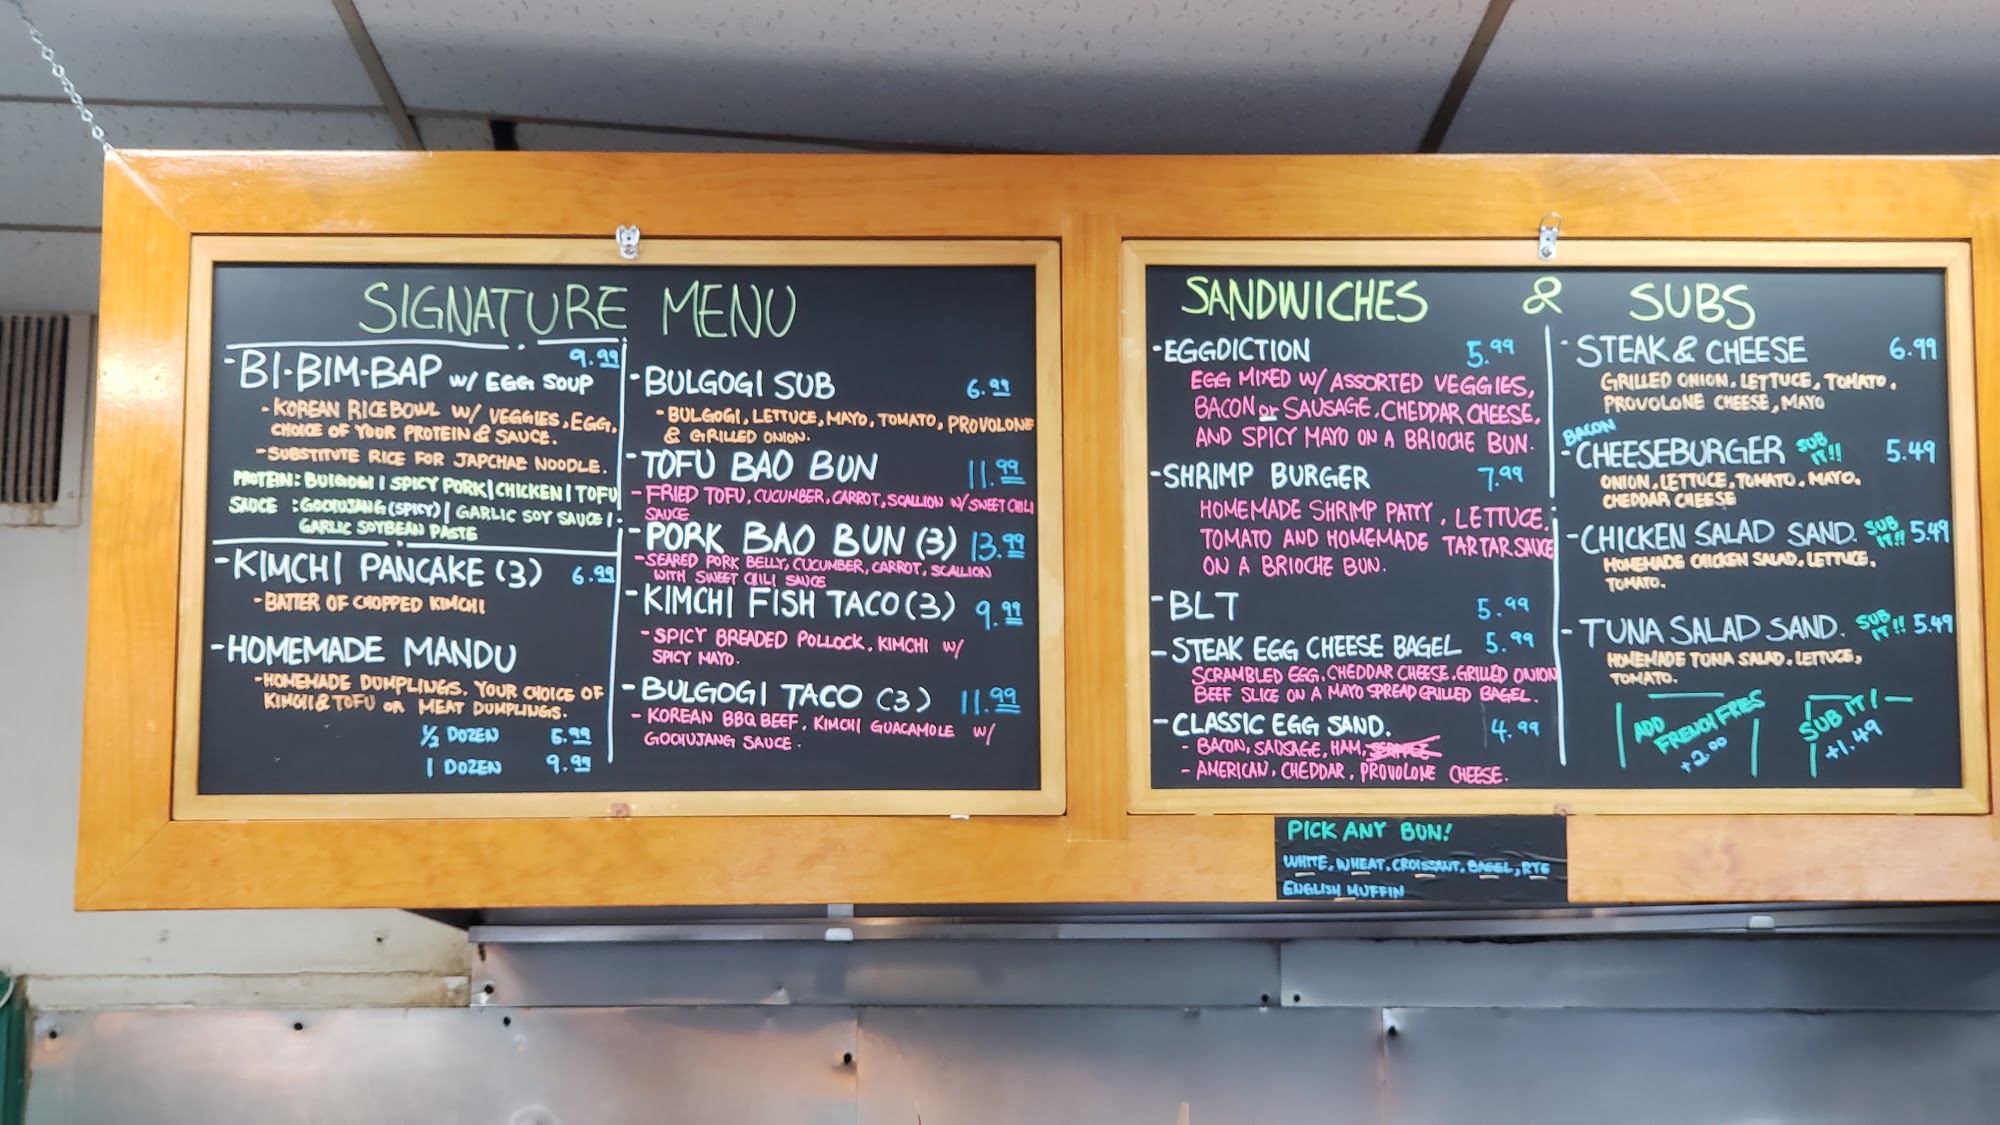 SIGNATURE MENU
- BI-BIM-BAP W/ EGG SOUP 9.99
- KOREAN RICE BOWL W/ VEGGIES, EGG,
CHOICE OF YOUR PROTEIN & SAUCE.
- SUBSTITUTE RICE FOR JAPCHAE NOODLE.
PROTEIN: BULGOGI | SPICY PORK | CHICKEN | TOFU
SAUCE : GOCHUJANG (SPICY) | GARLIC SOY SAUCE |
GARLIC SOYBEAN PASTE
- KIMCHI PANCAKE (3) 6.99
- BATTER OF CHOPPED KIMCHI
- HOMEMADE MANDU
- HOMEMADE DUMPLINGS. YOUR CHOICE OF
KIMCHI & TOFU OR MEAT DUMPLINGS.
1/2 DOZEN 5.99
1 DOZEN 9.99
- BULGOGI SUB 6.99
- BULGOGI, LETTUCE, MAYO, TOMATO, PROVOLONE
& GRILLED ONION.
- TOFU BAO BUN 11.99
- FRIED TOFU, CUCUMBER, CARROT, SCALLION W/ SWEET CHILI
SAUCE
- PORK BAO BUN (3) 13.99
- SEARED PORK BELLY, CUCUMBER, CARROT, SCALLION
WITH SWEET CHILI SAUCE
- KIMCHI FISH TACO (3) 9.99
- SPICY BREADED POLLOCK, KIMCHI W/
SPICY MAYO.
- BULGOGI TACO (3) 11.99
- KOREAN BBQ BEEF, KIMCHI GUACAMOLE W/
GOCHUJANG SAUCE.
SANDWICHES & SUBS
- EGGDICTION 5.99
EGG MIXED W/ ASSORTED VEGGIES,
BACON or SAUSAGE, CHEDDAR CHEESE,
AND SPICY MAYO ON A BRIOCHE BUN.
- SHRIMP BURGER 7.99
HOMEMADE SHRIMP PATTY, LETTUCE,
TOMATO AND HOMEMADE TARTAR SAUCE
ON A BRIOCHE BUN.
- BLT 5.99
- STEAK EGG CHEESE BAGEL 5.99
SCRAMBLED EGG, CHEDDAR CHEESE, GRILLED ONION
BEEF SLICE ON A MAYO SPREAD GRILLED BAGEL.
- CLASSIC EGG SAND. 4.99
- BACON, SAUSAGE, HAM,
- AMERICAN, CHEDDAR, PROVOLONE CHEESE.
- STEAK & CHEESE 6.99
GRILLED ONION, LETTUCE, TOMATO,
PROVOLONE CHEESE, MAYO
BACON
- CHEESEBURGER SUB IT!! 5.49
ONION, LETTUCE, TOMATO, MAYO,
CHEDDAR CHEESE
- CHICKEN SALAD SAND. SUB IT!! 5.49
HOMEMADE CHICKEN SALAD, LETTUCE,
TOMATO.
- TUNA SALAD SAND. SUB IT!! 5.49
HOMEMADE TUNA SALAD, LETTUCE,
TOMATO.
ADD
FRENCH FRIES
+2.00
SUB IT!
+1.49
PICK ANY BUN!
WHITE, WHEAT, CROISSANT, BAGEL, RYE
ENGLISH MUFFIN